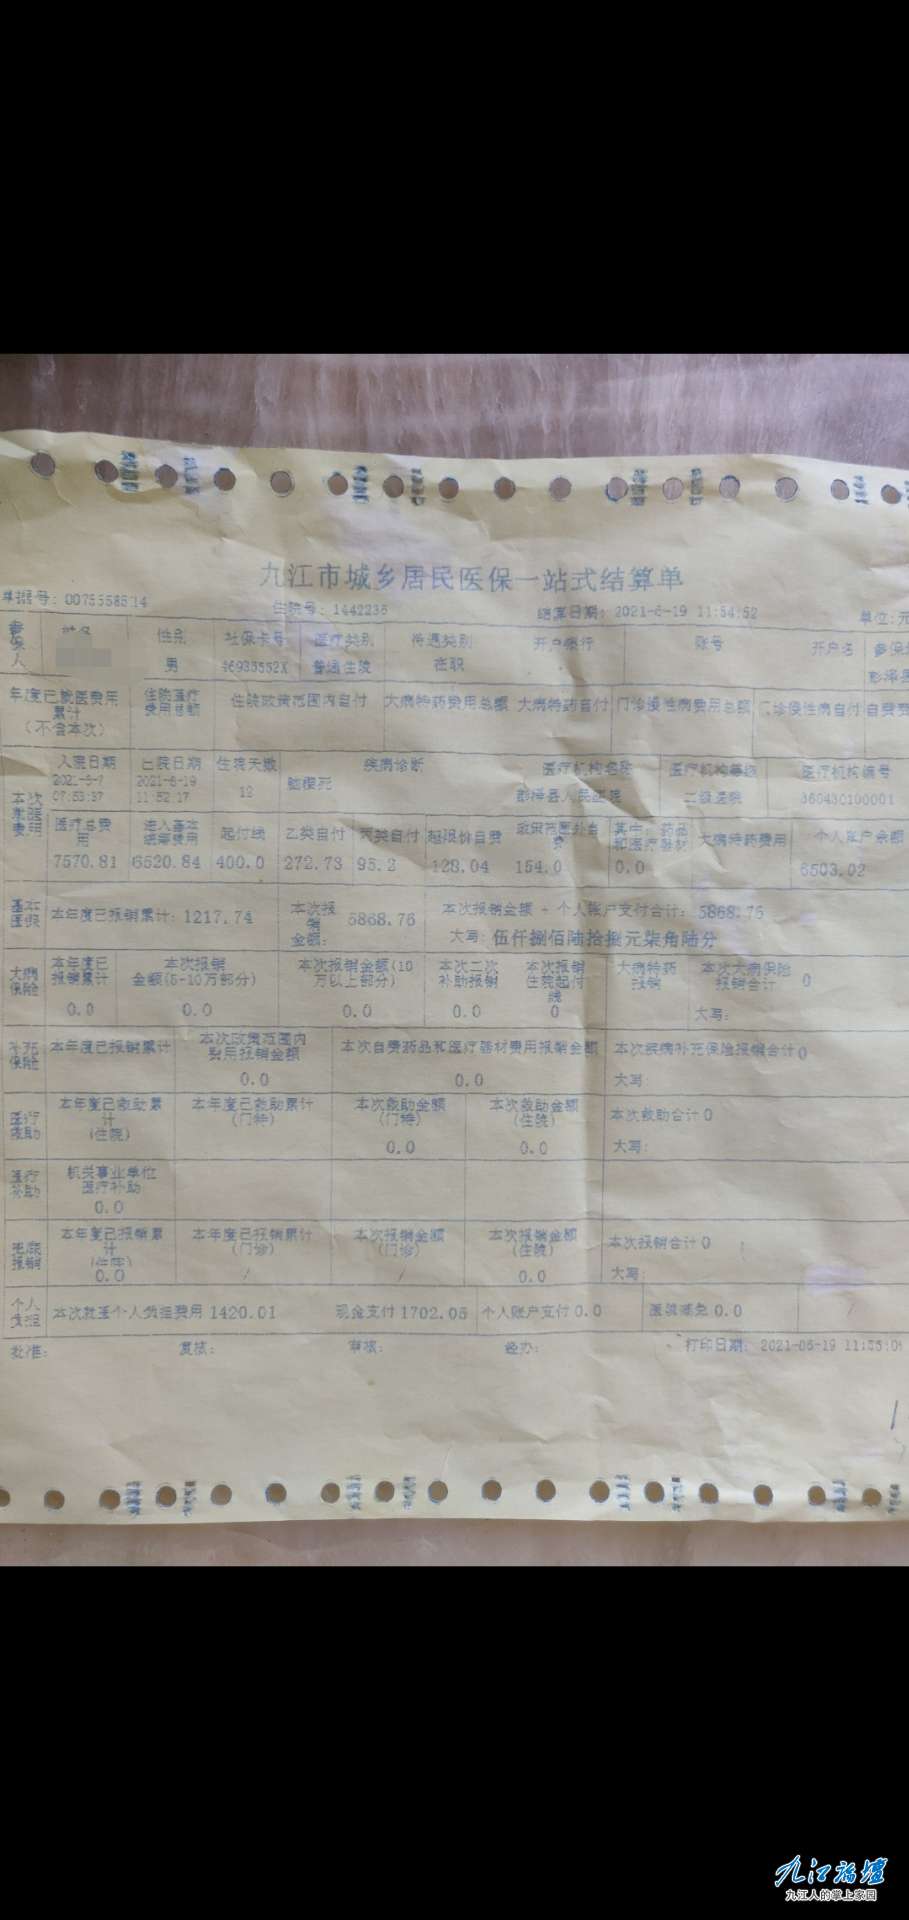 九江市城乡居民医保一站式结算单
单据号: 0075558514 住院号: 1442236 结算日期: 2021-6-19 11:54:52 单位:元
参保人 姓名 性别 社保卡号 医疗类别 待遇类别 开户银行 账号 开户名 参保
男 46933552X 普通住院 在职 彭泽县
年度已就医费用累计(不含本次) 住院医疗费用总额 住院政策范围内自付 大病特药费用总额 大病特药自付 门诊慢性病费用总额 门诊慢性病自付 自费费
本次就医费用 入院日期 出院日期 住院天数 疾病诊断 医疗机构名称 医疗机构等级 医疗机构编号
2021-6-7 07:53:37 2021-6-19 11:52:17 12 脑梗死 彭泽县人民医院 二级医院 360430100001
医疗总费用 进入基本统筹费用 起付线 乙类自付 丙类自付 超限价自费 政策范围外自费 其中: 药品和医疗器材 大病特药费用 个人账户余额
7570.81 6520.84 400.0 272.73 95.2 128.04 154.0 0.0 6503.02
基本医保 本年度已报销累计: 1217.74 本次报销金额: 5868.76 本次报销金额 + 个人账户支付合计: 5868.76
大写: 伍仟捌佰陆拾捌元柒角陆分
大病保险 本年度已报销累计 本次报销金额(5-10万部分) 本次报销金额(10万以上部分) 本次二次补助报销 本次报销住院起付线 大病特药报销 本次大病保险报销合计 0
0.0 0.0 0.0 0.0 0 大写:
补充保险 本年度已报销累计 本次政策范围内费用报销金额 本次自费药品和医疗器材费用报销金额 本次疾病补充保险报销合计 0
0.0 0.0 大写
医疗救助 本年度已救助累计(住院) 本年度已救助累计(门特) 本次救助金额(门特) 本次救助金额(住院) 本次救助合计 0
0.0 0.0 大写:
医疗补助 机关事业单位医疗补助
0.0
兜底报销 本年度已报销累计(住院) 本年度已报销累计(门诊) 本次报销金额(门诊) 本次报销金额(住院) 本次报销合计 0
0.0 / / 0.0 大写:
个人负担 本次就医个人负担费用 1420.01 现金支付 1702.05 个人账户支付 0.0 医院减免 0.0 /
批准: 复核: 审核: 经办: 打印日期: 2021-06-19 11:55:0
九江论坛
九江人的掌上家园